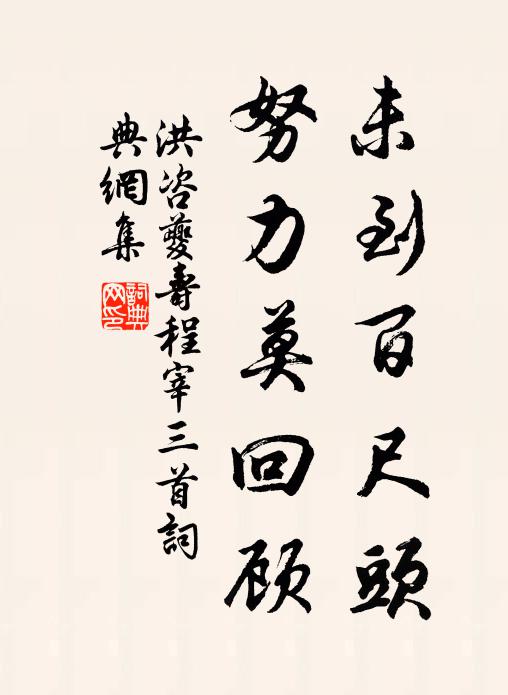 未到百尺頭
努力莫回顾
洪咨夔壽程宰三首詞
典網集
詞典网印